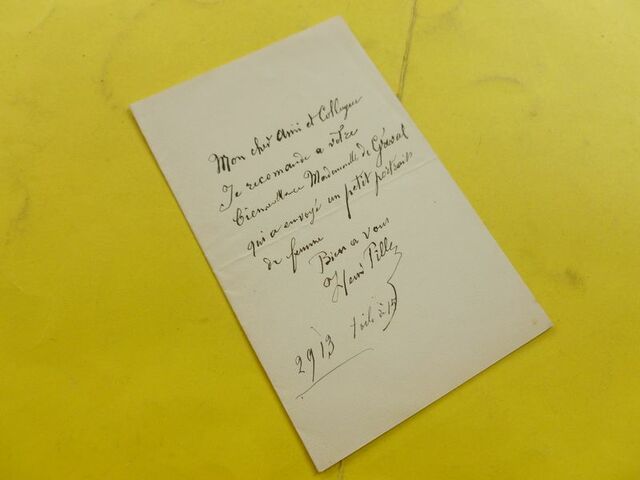 Mon cher ami et Collegue
Je recomande a votre
bienveillance Mademoiselle de
qui a envoyé un petit portrait
de femme
Bien a vous
Henri Pille
2913 toile de 15